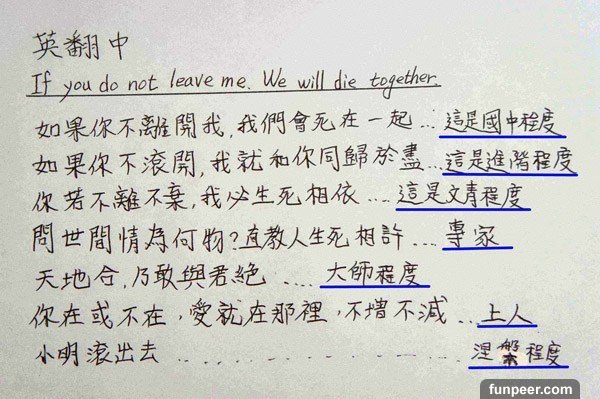 英翻中
If you do not leave me. We will die together.
如果你不離開我,我們會死在一起...這是國中程度
如果你不滾開,我就和你同歸於盡...這是進階程度
你若不離不棄,我必生死相依....這是文青程度
問世間情為何物?直教人生死相許....專家
天地合,乃敢與君絕.....大師程度
你在或不在,愛就在那裡,不增不減...上人
小明滾出去..............涅槃程度
funpeer.com